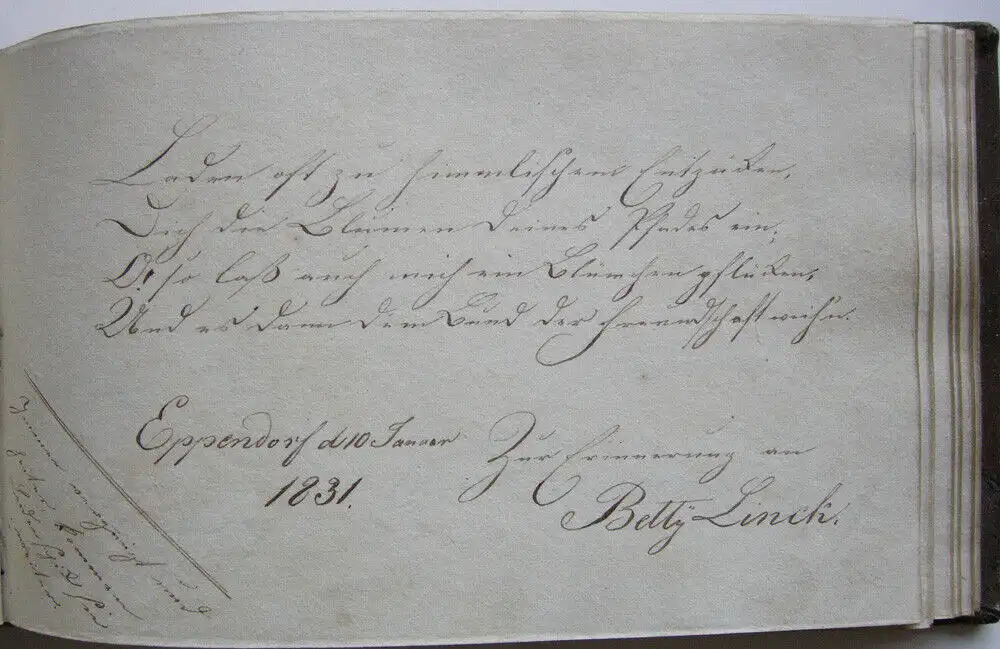 Laden oft zu himmlischem Entzüken,
Dich die Blumen deines Pfades ein;
O! so laß auch mich ein Blümchen pflüken,
Und es dann dem Bund der Freundschaft weih'n.
Eppendorf d 10 Januar
1831.
Zur Erinnerung an
Betty Linck.
Immer vergnügt und
guter